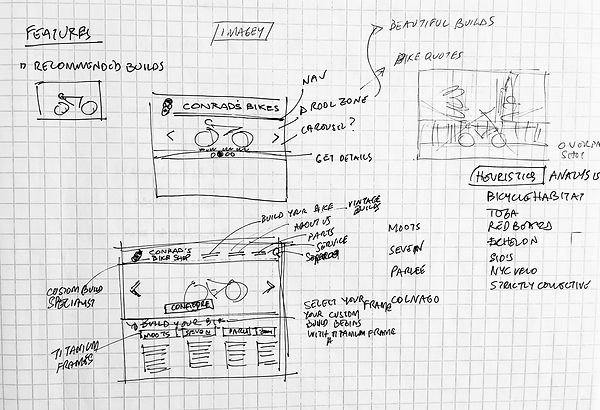 FEATURES
IMAGEY
BEAUTIFUL BUILDS
BIKE QUOTES
1) RECOMMENDED BUILDS
NAV
CONRAD'S BIKES
DROOL ZONE
CAROUSEL?
GET DETAILS
HEURISTICS ANALYSIS
BICYCLE HABITAT
TOGA
RED BOARD
ECHELON
SIDS
NYC VELO
STRICTLY COLLECTIVE
BUILD YOUR BIKE
VINTAGE BUILDS
ABOUT US
PARTS
SERVICE
MOOTS
SEVEN
PARLEE
COLNAGO
CONRAD'S
BIKE SHOP
CUSTOM BUILD
SPECIALIST
CONFIGURE
SELECT YOUR FRAME
YOUR CUSTOM
BUILD BEGINS
WITH A TITANIUM FRAME
BUILD YOUR BIKE
MOOTS
SEVEN
PARLEE
TITANIUM
FRAMES